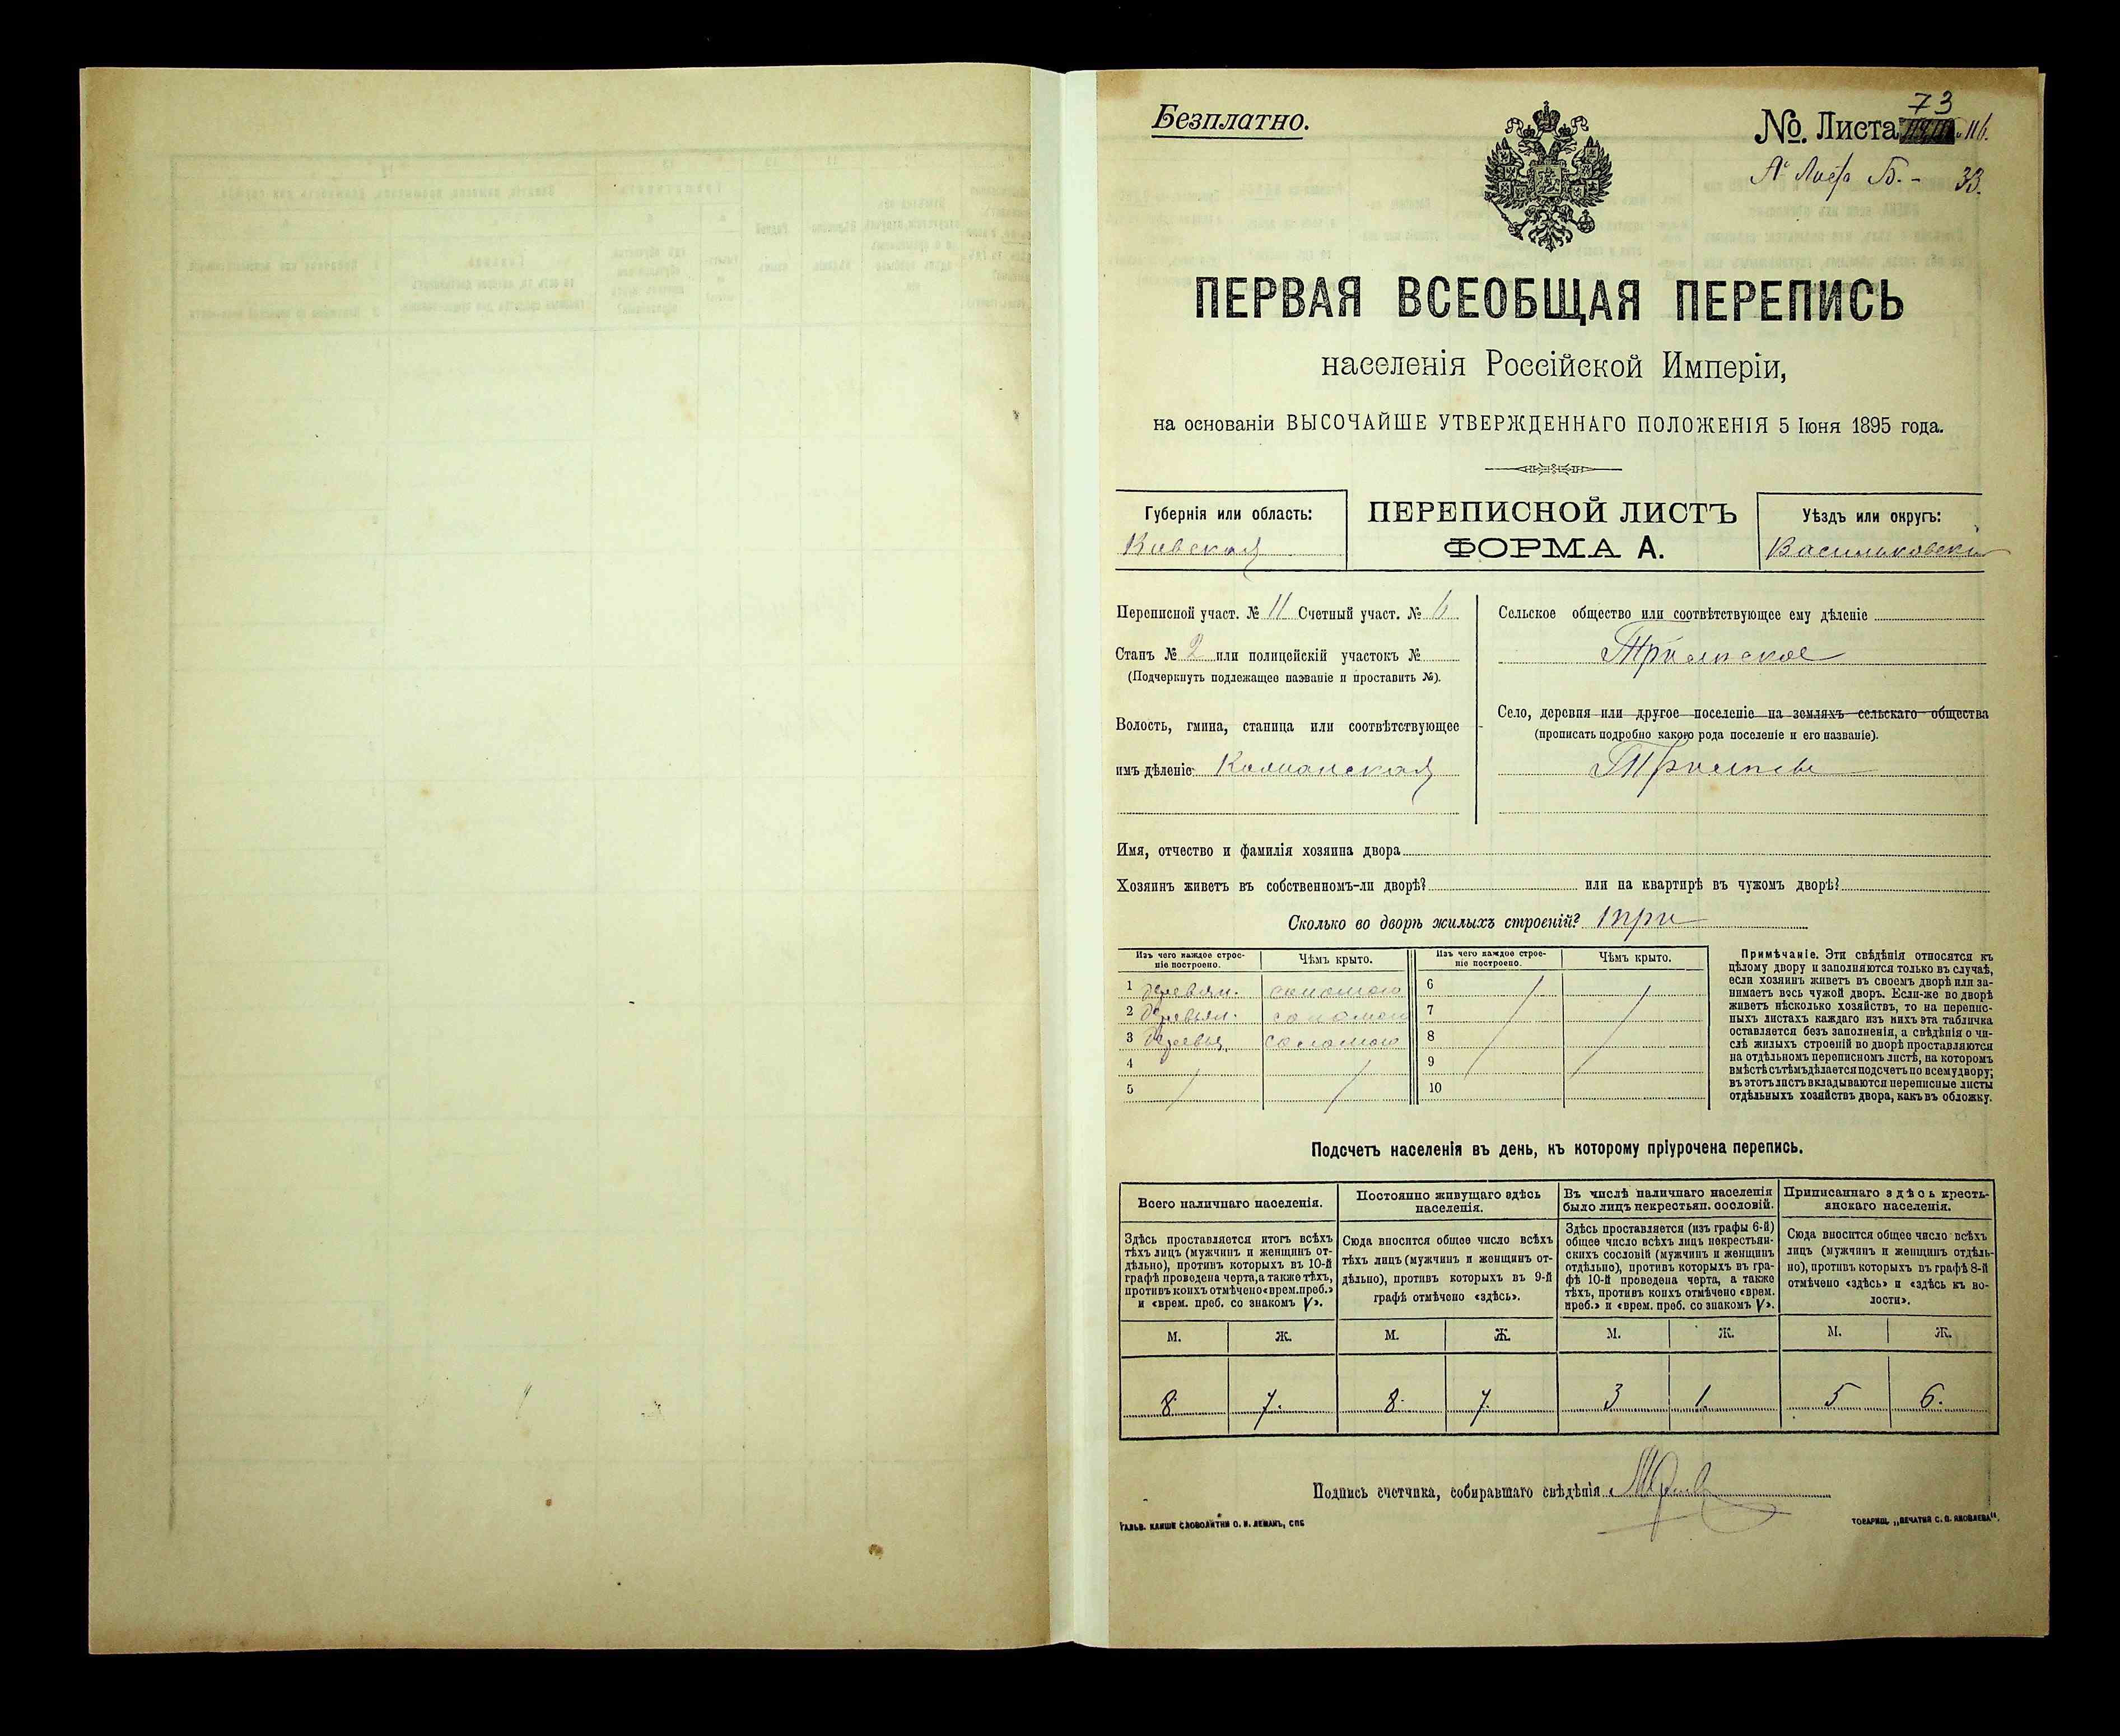 Безплатно.
73
№. Листа 116.
Б. - 33.
ПЕРВАЯ ВСЕОБЩАЯ ПЕРЕПИСЬ
населенія Россійской Имперіи,
на основаніи ВЫСОЧАЙШЕ УТВЕРЖДЕННАГО ПОЛОЖЕНІЯ 5 Іюня 1895 года.
Губернія или область:
Киевская
ПЕРЕПИСНОЙ ЛИСТЪ
ФОРМА А.
Уѣздъ или округъ:
Васильковскій
Переписной участ. № 11 Счетный участ. № 6
Станъ № 2 или полицейскій участокъ №
(Подчеркнуть подлежащее названіе и проставить №).
Волость, гмина, станица или соотвѣтствующее
имъ дѣленіе
Сельское общество или соотвѣтствующее ему дѣленіе
Трилиское
Село, деревня или другое поселеніе на земляхъ сельскаго общества
(прописать подробно какого рода поселеніе и его названіе).
Имя, отчество и фамилія хозяина двора
Хозяинъ живетъ въ собственномъ-ли дворѣ? или на квартирѣ въ чужомъ дворѣ?
Сколько во дворѣ жилыхъ строеній? три
Изъ чего каждое строе-
ніе построено.
Чѣмъ крыто.
Изъ чего каждое строе-
ніе построено.
Чѣмъ крыто.
1 деревян. соломою 6
2 деревян. соломою 7
3 деревя. соломою 8
4 9
5 10
Примѣчаніе. Эти свѣдѣнія относятся къ
цѣлому двору и заполняются только въ случаѣ,
если хозяинъ живетъ въ своемъ дворѣ или за-
нимаетъ весь чужой дворъ. Если-же во дворѣ
живетъ нѣсколько хозяйствъ, то на перепис-
ныхъ листахъ каждаго изъ нихъ эта табличка
оставляется безъ заполненія, а свѣдѣнія о чи-
слѣ жилыхъ строеній во дворѣ проставляются
на отдѣльномъ переписномъ листѣ, на которомъ
вмѣстѣ съ тѣмъ дѣлается подсчетъ по всему двору;
въ этотъ листъ вкладываются переписные листы
отдѣльныхъ хозяйствъ двора, какъ въ обложку.
Подсчетъ населенія въ день, къ которому пріурочена перепись.
Всего наличнаго населенія.
Постоянно живущаго здѣсь
населенія.
Въ числѣ наличнаго населенія
было лицъ некрестьян. сословій.
Приписаннаго здѣсь кресть-
янскаго населенія.
Здѣсь проставляется итогъ всѣхъ
тѣхъ лицъ (мужчинъ и женщинъ от-
дѣльно), противъ которыхъ въ 10-й
графѣ проведена черта, а также тѣхъ,
противъ коихъ отмѣчено «врем. преб.»
и «врем. преб. со знакомъ V».
Сюда вносится общее число всѣхъ
тѣхъ лицъ (мужчинъ и женщинъ от-
дѣльно), противъ которыхъ въ 9-й
графѣ отмѣчено «здѣсь».
Здѣсь проставляется (изъ графы 6-й)
общее число всѣхъ лицъ некрестьян-
скихъ сословій (мужчинъ и женщинъ
отдѣльно), противъ которыхъ въ гра-
фѣ 10-й проведена черта, а также
тѣхъ, противъ коихъ отмѣчено «врем.
преб.» и «врем. преб. со знакомъ V».
Сюда вносится общее число всѣхъ
лицъ (мужчинъ и женщинъ отдѣль-
но), противъ которыхъ въ графѣ 8-й
отмѣчено «здѣсь» и «здѣсь къ во-
лости».
М. Ж. М. Ж. М. Ж. М. Ж.
8. 7. 8. 7. 3 1. 5 6.
Подпись счетчика, собиравшаго свѣдѣнія
ГАЛЬВ. КЛИШЕ СЛОВОЛИТНИ О. И. ЛЕМАНЪ, СПБ
ТОВАРИЩ. „ПЕЧАТНЯ С. П. ЯКОВЛЕВА“.